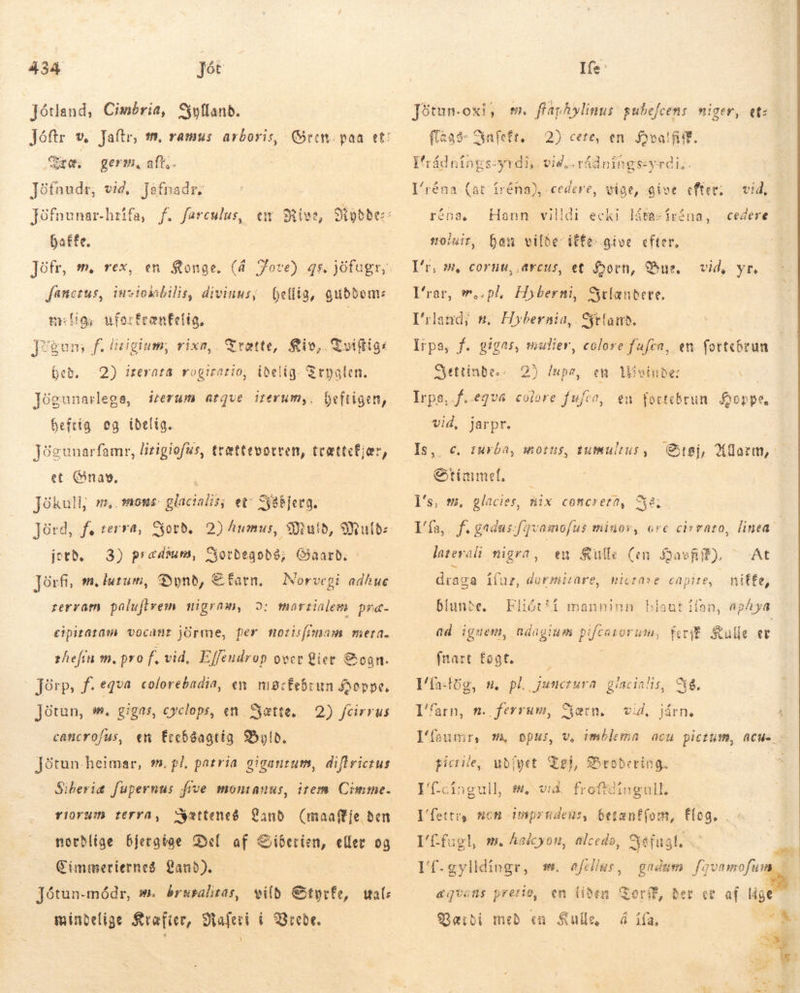 434 Jót
Jótland, Cimbria, Jylland.
Jóftr v. Jaftr, m. ramus arboris, Green paa et
Træ. germ. aft.
Jöfnudr, vid. Jafnadr.
Jöfnunar-hrifa, f. farculus, en Rive, Rydde-
hakke.
Jöfr, m. rex, en Konge. (á Jove) qs. jöfugr,
fanctus, inviolabilis, divinus, hellig, guddom-
melig, uforkrænkelig.
Jögun, f. litigium, rixa, Trætte, Kiv, Tvistig-
hed. 2) iterata rogitatio, idelig Tryglen.
Jögunarlega, iterum atqve iterum, heftigen,
heftig og idelig.
Jögunarfamr, litigiofus, trættevorren, trættekjær,
et Gnav.
Jökull, m. mons glacialis, et Jisbjerg.
Jörd, f. terra, Jord. 2) humus, Muld, Muld-
jord. 3) prædium, Jordegods, Gaard.
Jörfi, m. lutum, Dynd, Skarn. Norvegi adhuc
terram paluftrem nigram, ɔ: martialem præ-
cipitatam vocant jörme, per notisfimam meta-
thefin m. pro f. vid. Effendrop over Lier Sogn.
Jörp, f. eqva colorebadia, en mørkebrun Hoppe.
Jötun, m. gigas, cyclops, en Jætte. 2) fcirrus
cancrofus, en krebsagtig Byld.
Jötun heimar, m. pl. patria gigantum, diftrictus
Siberiæ fupernus five montanus, item Cimme-
riorum terra, Jættenes Land (maaskje den
nordlige bjergige Del af Siberien, eller og
Cimmeriernes Land).
Jötun-módr, m. brutalitas, vild Styrke, ual-
mindelige Kræfter, Raseri i Vrede.
Ife
Jötun-oxi, m. ftaphylinus pubefcens niger, et-
slags Insekt. 2) cete, en Hvalfisk.
I'rádníngs-yrdi, vid. rádníngs-yrdi.
I'réna (at íréna), cedere, vige, give efter. vid.
réna. Hann villdi ecki láta íréna, cedere
noluit, han vilde ikke give efter.
I'r, m. cornu, arcus, et Horn, Bue. vid. yr.
I'rar, m. pl. Hyberni, Irlændere.
I'rland, n. Hybernia, Irland.
Irpa, f. gigas, mulier, colore fufca, en sortebrun
Jettinde. 2) lupa, en Ulvinde.
Irpa, f. eqva colore fufca, en sortebrun Hoppe.
vid. jarpr.
Is, c. turba, motus, tumultus, Støj, Allarm,
Stimmel.
I's, m. glacies, nix concreta, Js.
I'fa, f. gadus fqvamofus minor, ore cirrato, linea
laterali nigra, en Kulle (en Havfisk). At
draga ífur, dormitare, nictare capite, nikke,
blunde. Fliót'í manninn blaut ífan, aphya
ad ignem, adagium pifcatorum, fersk Kulle er
snart kogt.
I'fa-lög, n. pl. junctura glacialis, Js.
I'farn, n. ferrum, Jærn. vid. járn.
I'faumr, m. opus, v. imblema acu pictum, acu-
pictile, udsyet Tøj, Brodering.
I'f-cínguil, m. vid. froftdíngull.
I'fettr, non imprudens, betænksom, klog.
I'f-fugl, m. halcyon, alcedo, Jsfugl.
I'f-gylldíngr, m. afellus, gadum fqvamofum
æqvans pretio, en liden Torsk, der er af lige
Værdi med en Kulle. á ífa.